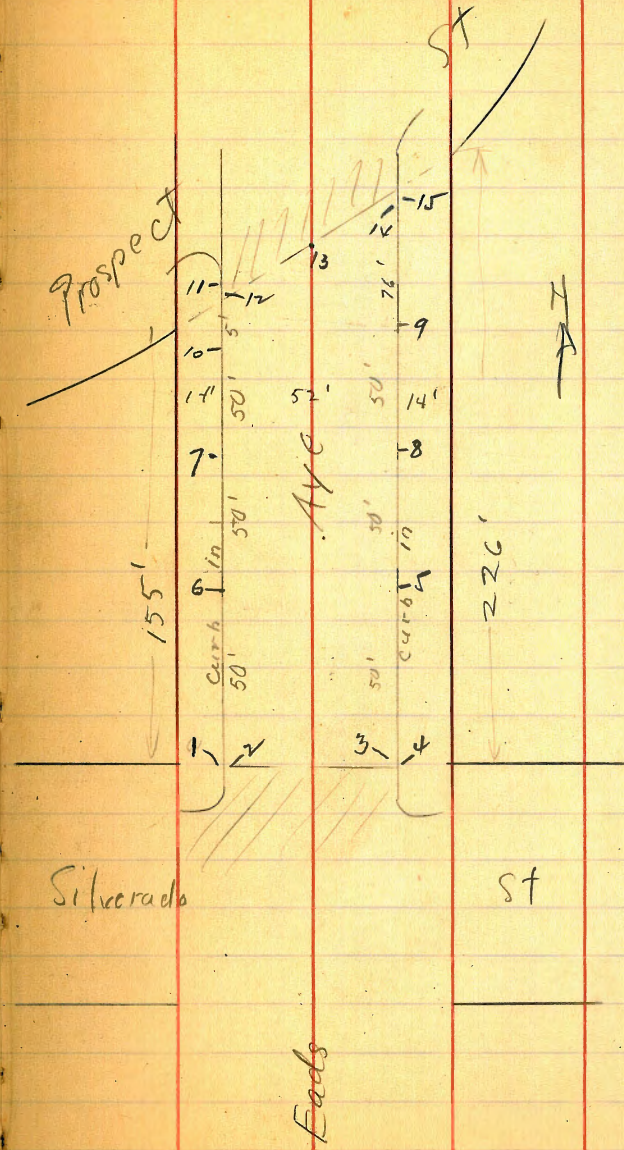 St
Prospect
15
14
13
11
12
76'
5'
9
10
50'
52'
50'
14'
7
8
Ave
50'
50'
in
in
155'
226'
6
5
Curb
Curb
50'
50'
1
2
3
4
Silverado
St
Eads